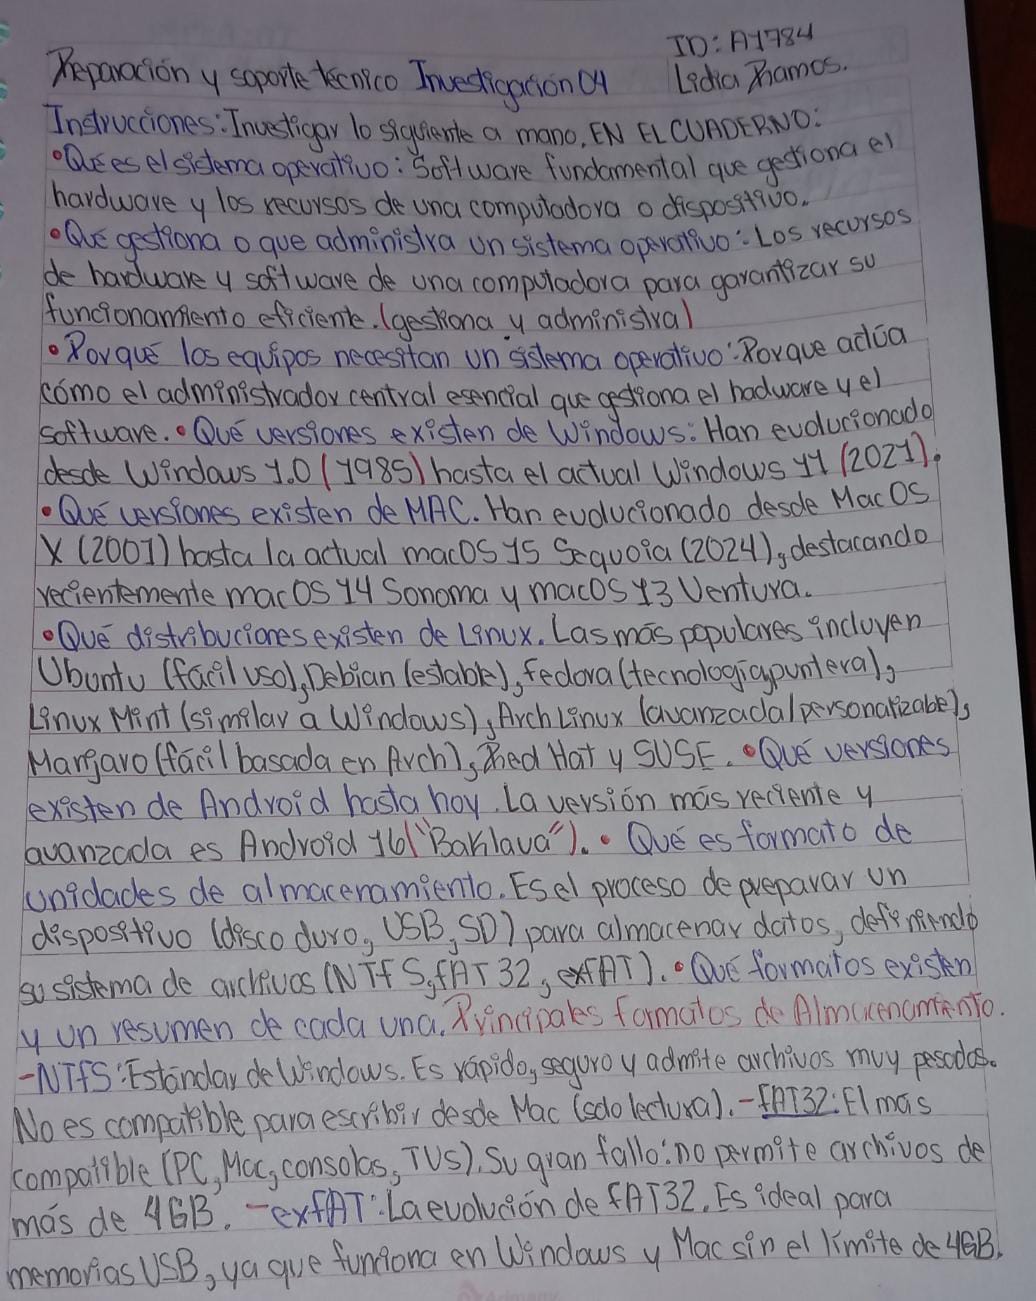 ID: A1784
Reparación y soporte técnico Investigación 04 Lidia Ramos.
Instrucciones: Investigar lo siguiente a mano, EN EL CUADERNO:
•Qué es el sistema operativo: Software fundamental que gestiona el
hardware y los recursos de una computadora o dispositivo.
•Qué gestiona o que administra un sistema operativo: Los recursos
de hardware y software de una computadora para garantizar su
funcionamiento eficiente. (gestiona y administra)
•Porqué los equipos necesitan un sistema operativo: Porque actúa
cómo el administrador central esencial que gestiona el hadware y el
software. •Qué versiones existen de Windows: Han evolucionado
desde Windows 1.0 (1985) hasta el actual Windows 11 (2021).
•Qué versiones existen de MAC. Han evolucionado desde Mac OS
X (2001) hasta la actual macOS 15 Sequoia (2024), destacando
recientemente macOS 14 Sonoma y macOS 13 Ventura.
•Qué distribuciones existen de Linux. Las más populares incluyen
Ubuntu (fácil uso), Debian (estable), Fedora (tecnología puntera),
Linux Mint (similar a Windows), Arch Linux (avanzada/personalizable),
Manjaro (fácil basada en Arch), Red Hat y SUSE. •Qué versiones
existen de Android hasta hoy. La versión más reciente y
avanzada es Android 16 ("Baklava"). • Qué es formato de
unidades de almacenamiento. Es el proceso de preparar un
dispositivo (disco duro, USB, SD) para almacenar datos, definiendo
su sistema de archivos (NTFS, FAT 32, exFAT). •Qué formatos existen
y un resumen de cada una. Principales formatos de Almacenamiento.
-NTFS: Estándar de Windows. Es rápido, seguro y admite archivos muy pesados.
No es compatible para escribir desde Mac (solo lectura). -FAT32: El más
compatible (PC, Mac, consolas, TVs). Su gran fallo: no permite archivos de
más de 4GB. -exFAT: La evolución de FAT32. Es ideal para
memorias USB, ya que funciona en Windows y Mac sin el límite de 4GB.